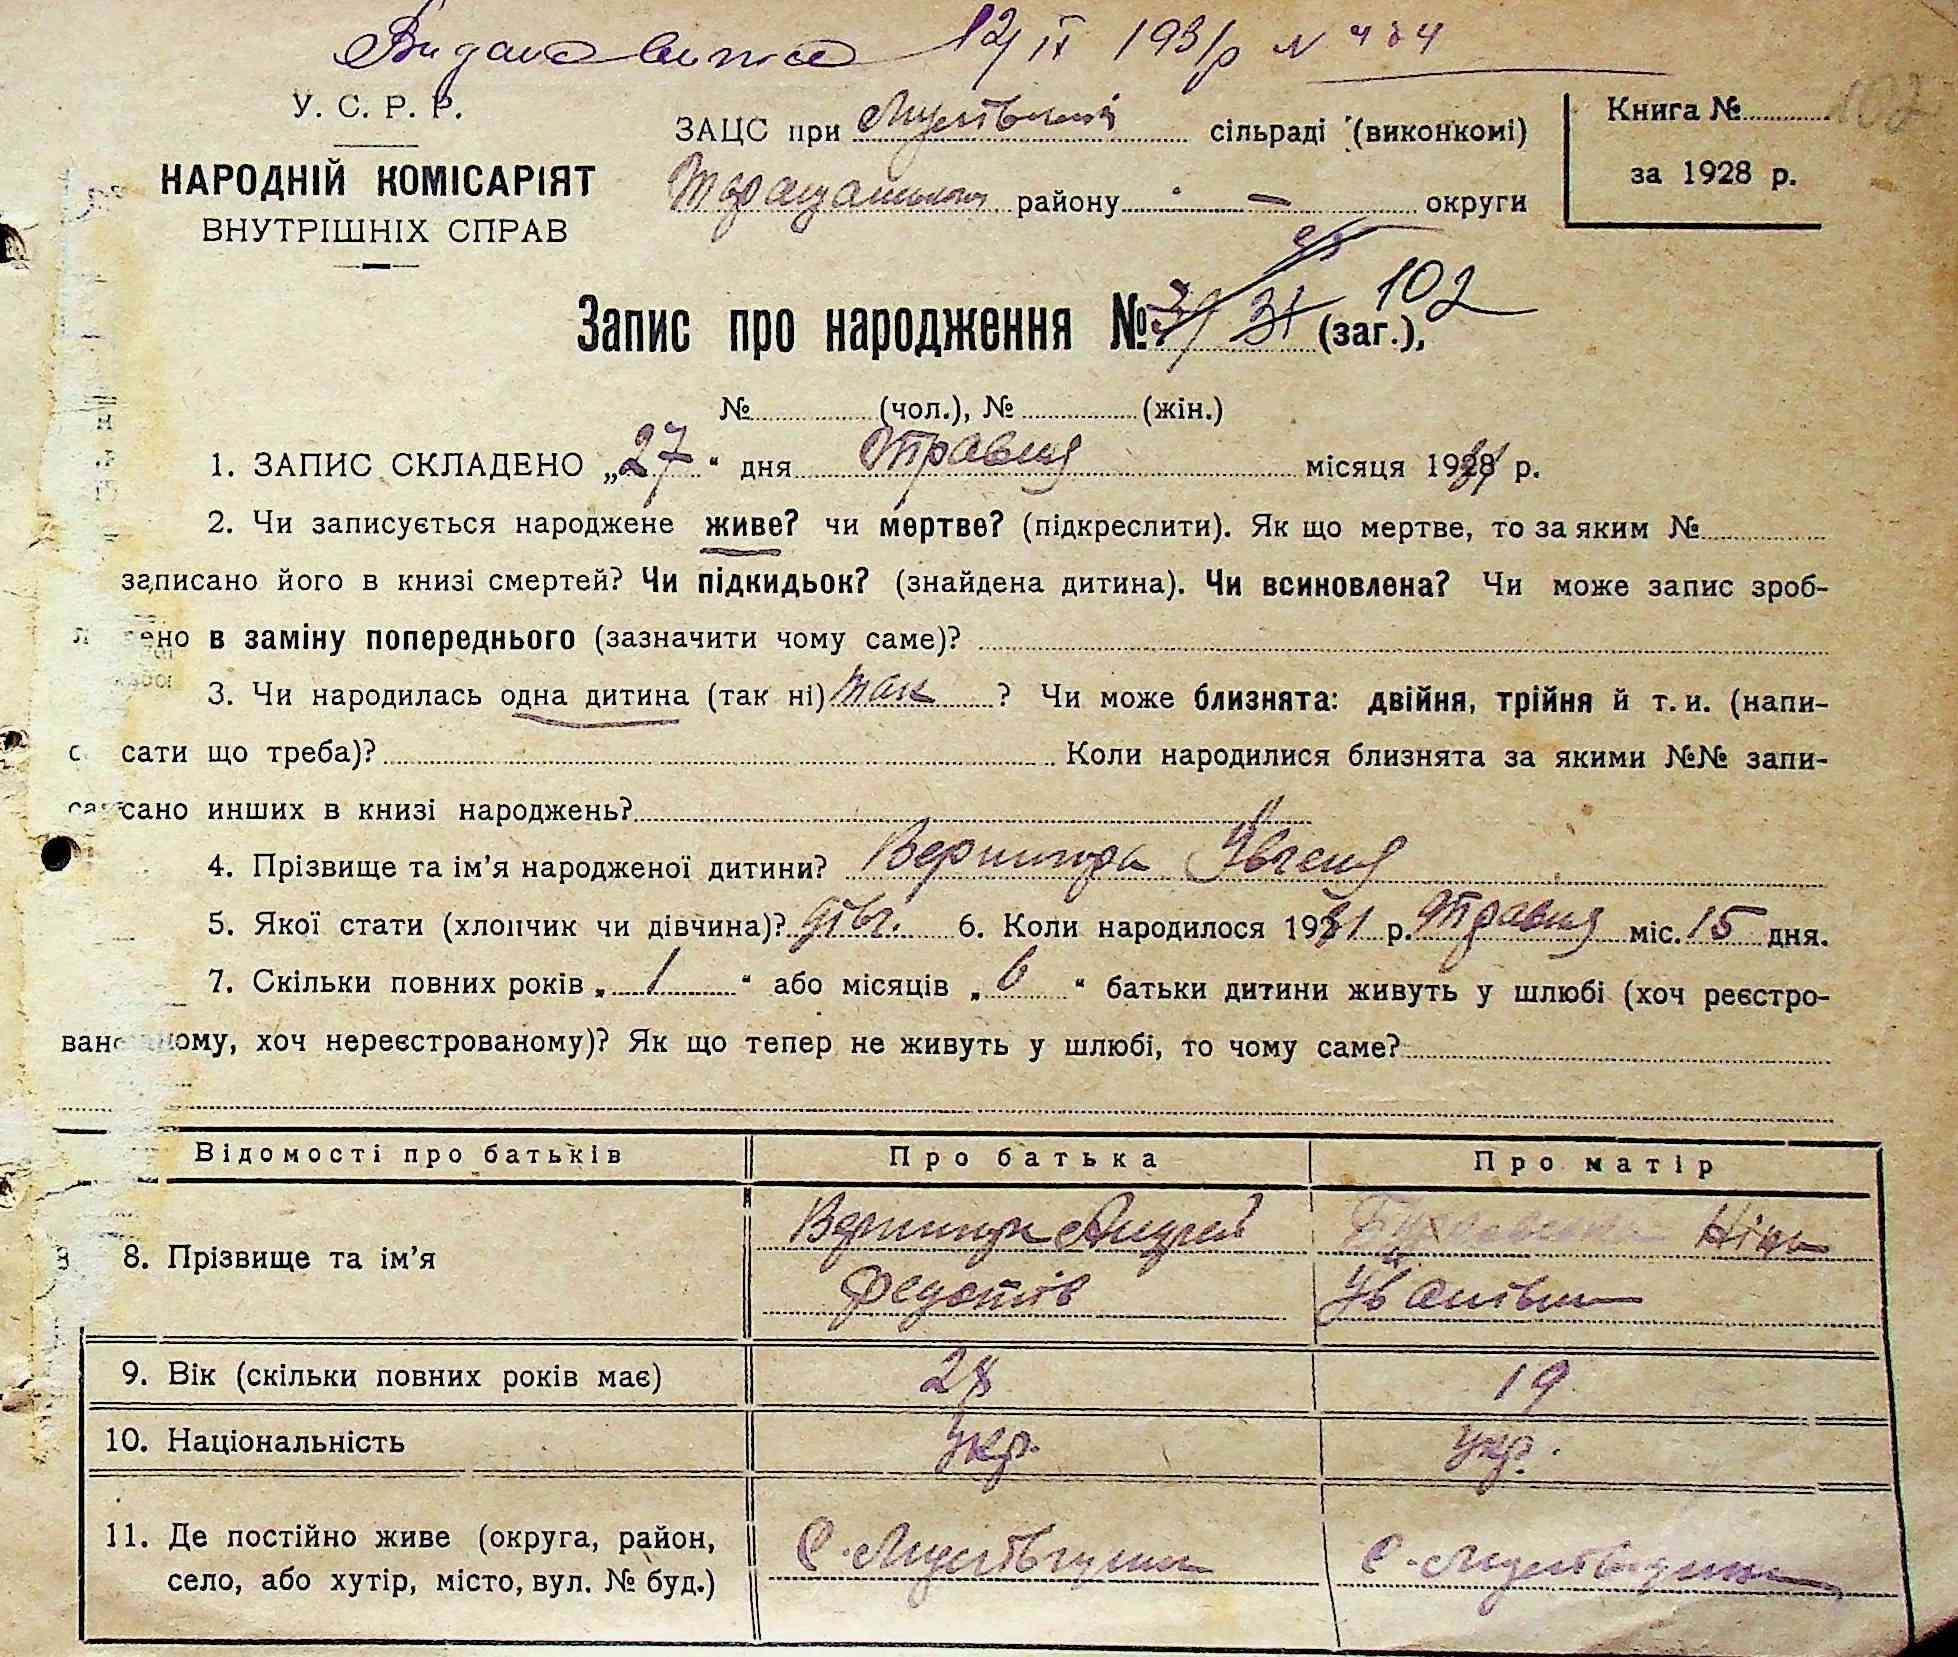 12/IX 1931 р N 434
У. С. Р. Р.
НАРОДНІЙ КОМІСАРІЯТ
ВНУТРІШНІХ СПРАВ
ЗАЦС при сільраді (виконкомі)
району — округи
Книга №
за 1928 р.
102
Запис про народження № 31 (заг.), 102
№ (чол.), № (жін.)
1. ЗАПИС СКЛАДЕНО „27" дня Травня місяця 1931 р.
2. Чи записується народжене живе? чи мертве? (підкреслити). Як що мертве, то за яким №
записано його в книзі смертей? Чи підкидьок? (знайдена дитина). Чи всиновлена? Чи може запис зроб-
лено в заміну попереднього (зазначити чому саме)?
3. Чи народилась одна дитина (так ні) так ? Чи може близнята: двійня, трійня й т. и. (напи-
сати що треба)? Коли народилися близнята за якими №№ запи-
сано инших в книзі народжень?
4. Прізвище та ім'я народженої дитини? Вернигора Євгенія
5. Якої стати (хлопчик чи дівчина)? дівч. 6. Коли народилося 1931 р. Травня міс. 15 дня.
7. Скільки повних років „1" або місяців „6" батьки дитини живуть у шлюбі (хоч реєстро-
ваному, хоч нереєстрованому)? Як що тепер не живуть у шлюбі, то чому саме?
Відомості про батьків Про батька Про матір
8. Прізвище та ім'я Вернигора Андрей Ніна
Федотів Іванівна
9. Вік (скільки повних років має) 28 19
10. Національність Укр. укр.
11. Де постійно живе (округа, район,
село, або хутір, місто, вул. № буд.) С. С.